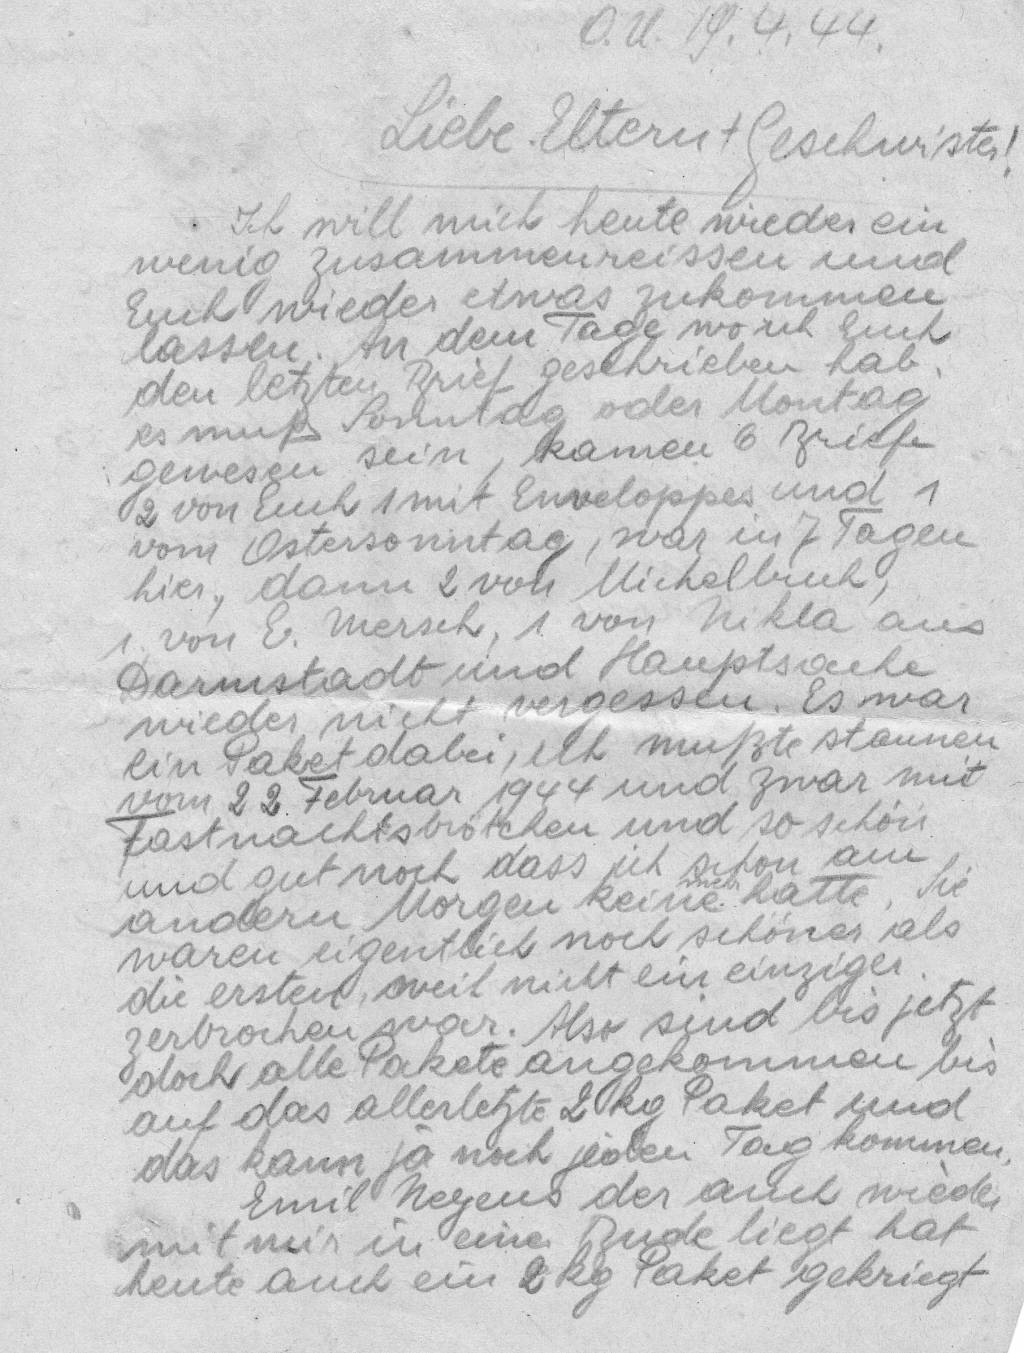 O.U. 19.4.44.
Liebe Eltern + Geschwister!
Ich will mich heute wieder ein
wenig zusammenreissen und
Euch wieder etwas zukommen
lassen. An dem Tage wo ich Euch
den letzten Brief geschrieben hab,
es muß Sonntag oder Montag
gewesen sein, kamen 6 Briefe
2 von Euch 1 mit Enveloppes und 1
vom Ostersonntag, war in 7 Tagen
hier, dann 2 von Michelbuch,
1. von E. Mersch, 1. von Nikla aus
Darmstadt und Hauptsache
wieder nicht vergessen. Es war
ein Paket dabei, ich mußte staunen
vom 22 Februar 1944 und zwar mit
Fastnachtsbrötchen und so schön
und gut noch dass ich schon am
andern Morgen keine mehr hatte. Sie
waren eigentlich noch schöner als
die ersten, weil nicht ein einziger
zerbrochen war. Also sind bis jetzt
doch alle Pakete angekommen bis
auf das allerletzte 2 kg Paket und
das kann ja noch jeden Tag kommen.
Emil Negens der auch wieder
mit mir in einer Bude liegt hat
heute auch ein 2 kg Paket gekriegt